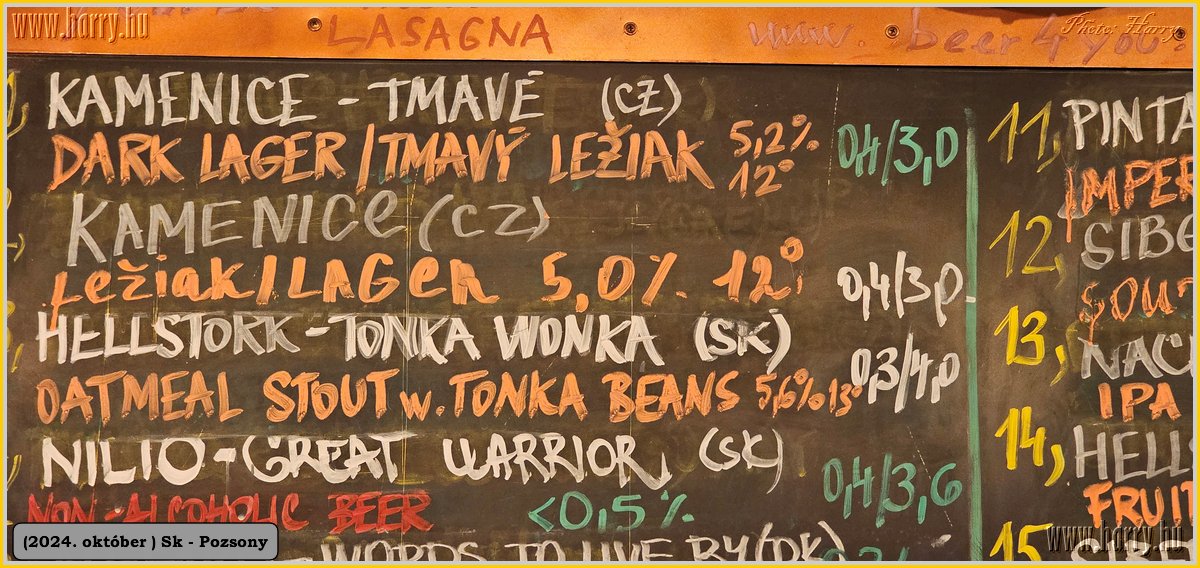 www.horry.hu
LASAGNA
www. beer4you.
Photo: Horry
KAMENICE - TMAVÉ (CZ)
DARK LAGER / TMAVÝ LEŽIAK 5,2% 12° 0,4/3,0
KAMENICE (CZ)
Ležiak / LAGER 5,0% 12° 0,4/3,0
HELLSTORK - TONKA WONKA (SK)
OATMEAL STOUT w. TONKA BEANS 5,6% 13° 0,3/4,0
NILIO - GREAT WARRIOR (SK)
NON-ALCOHOLIC BEER <0,5% 0,4/3,6
WORDS TO LIVE BY (DK)
11, PINTA
IMPER
12, SIBE
SOUT
13, NACH
IPA
14, HELL
FRUIT
15
(2024. október ) Sk - Pozsony
www.horry.hu